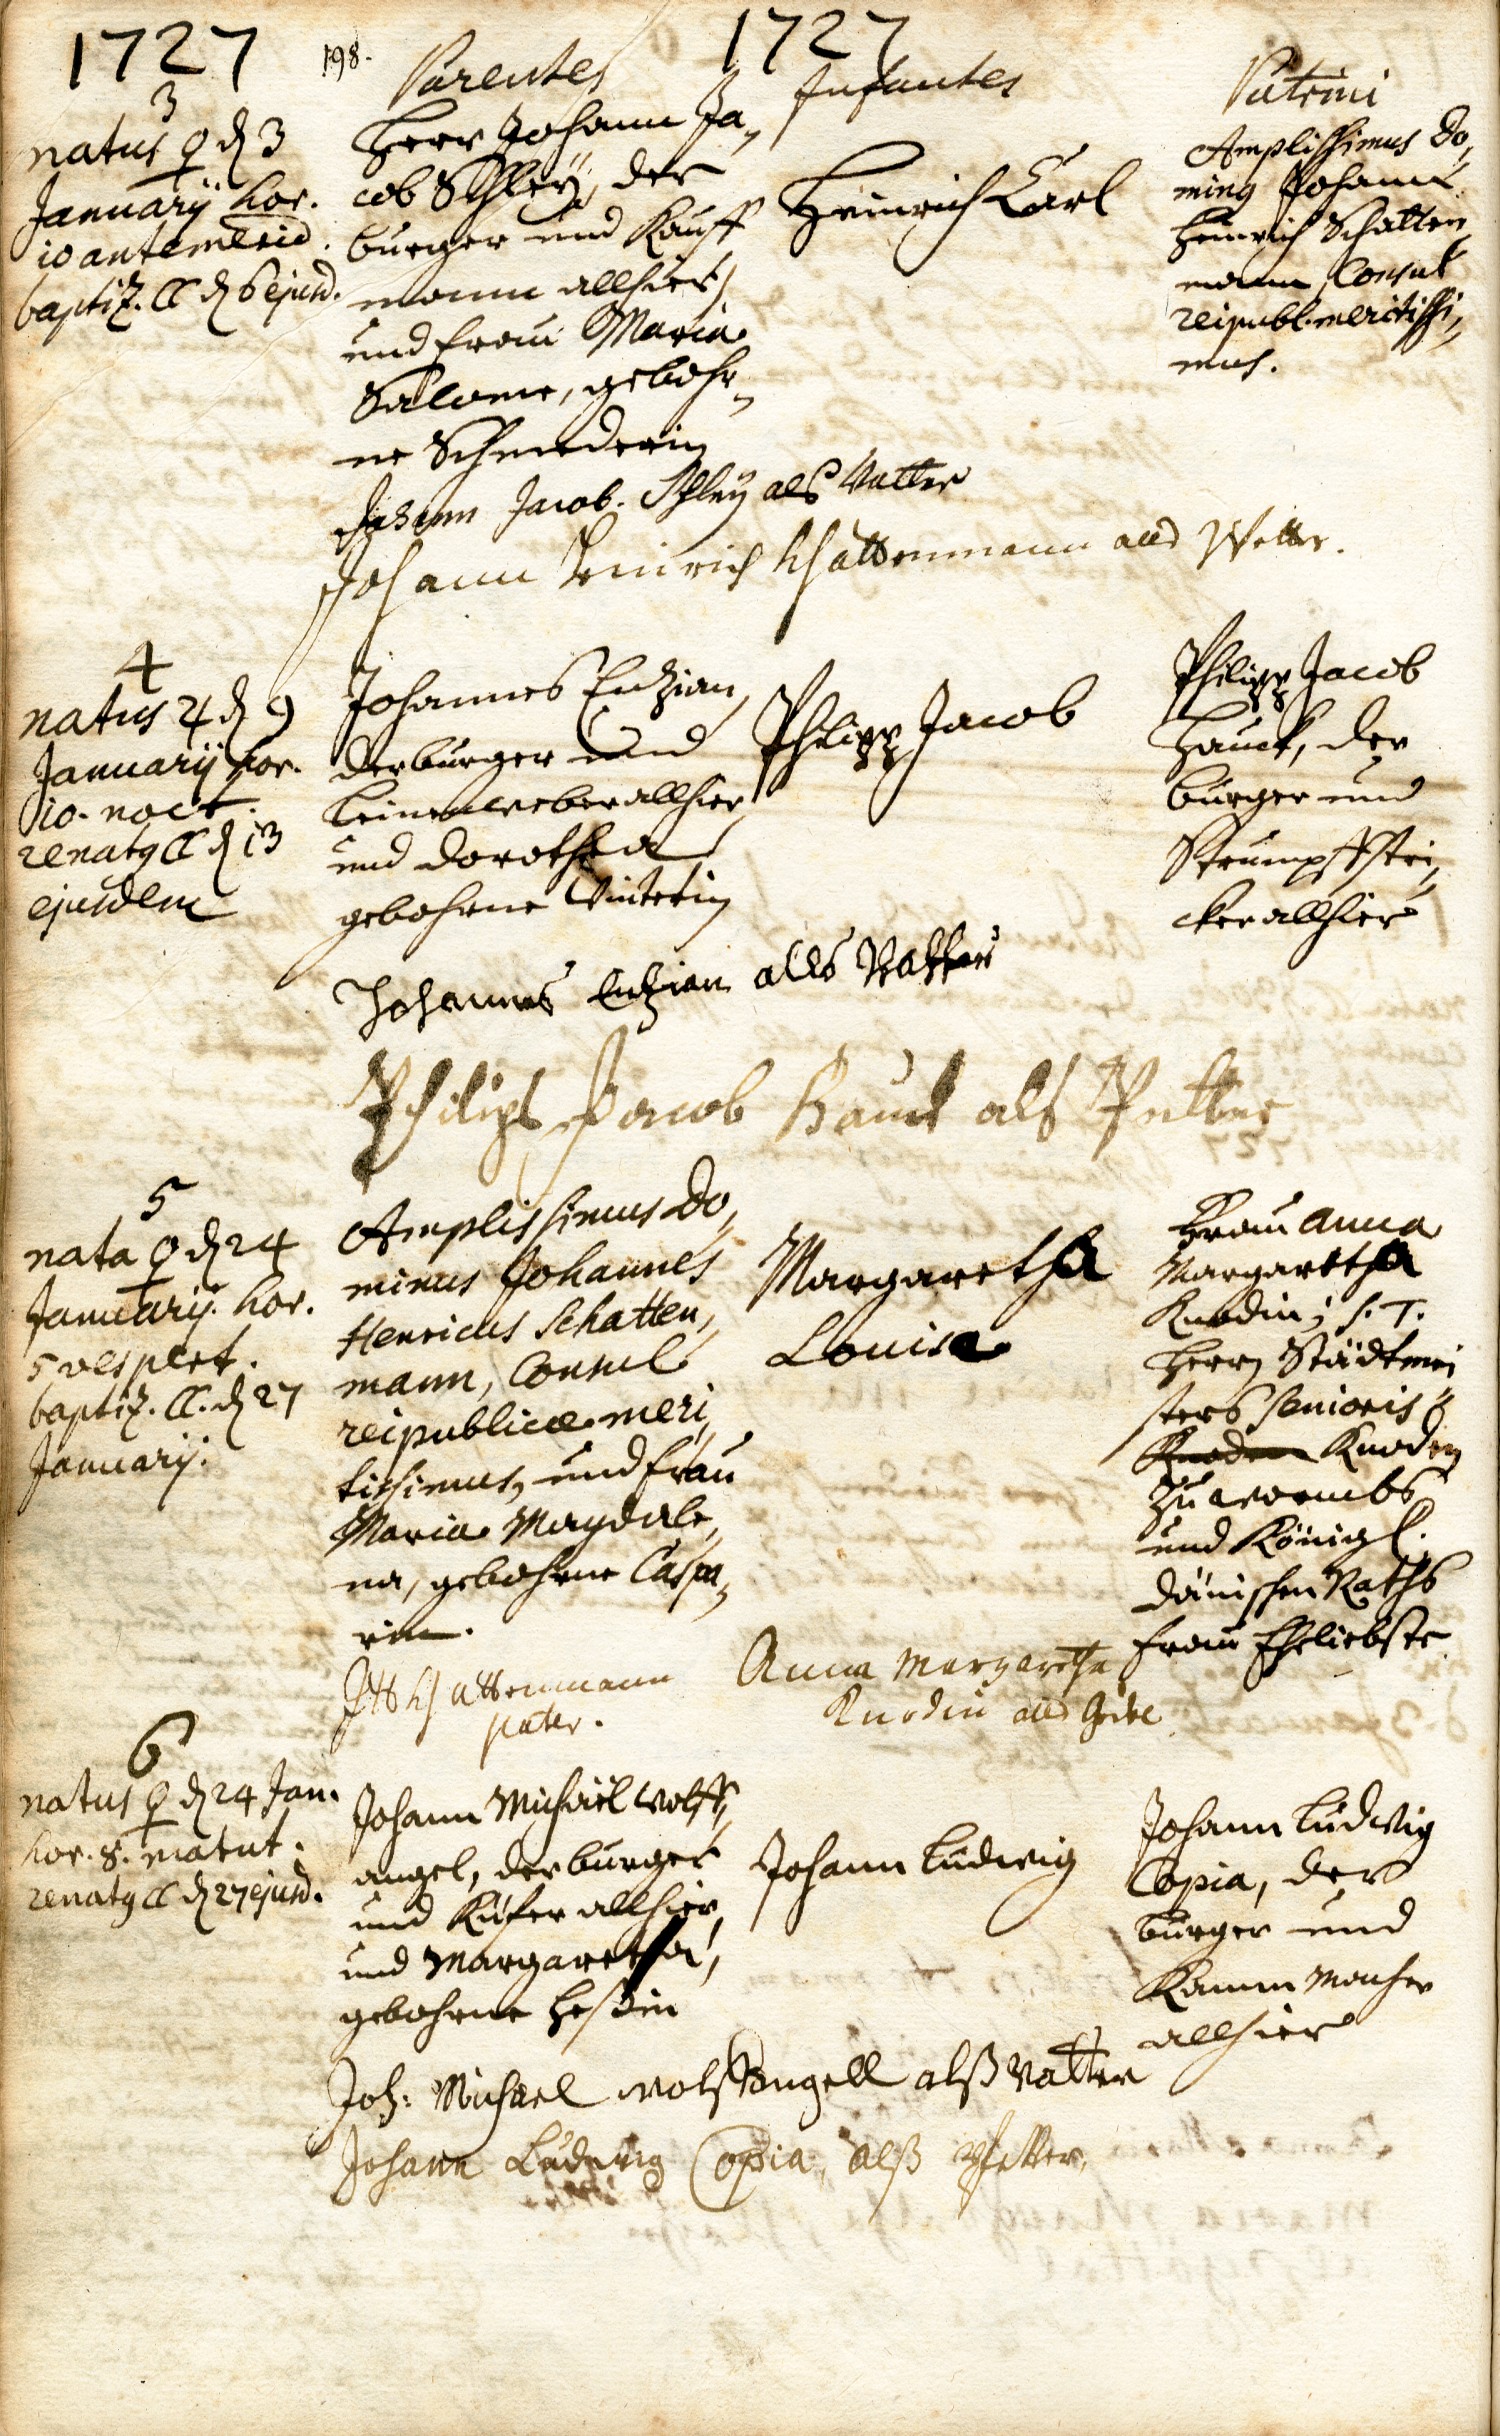 1727
198.
1727
Parentes
Infantes
Patrini
3
natus ♀ d 3
Januarij hor.
10 antemerid.
baptiz. ☾ d 6 ejusd.
Herr Johann Ja„
cob Schleÿ, der
burger und Kauff
mann allhier,
und Frau Maria
Salome, gebohr„
ne Schneiderin
Heinrich Carl
Amplissimus Do„
minus Johann
Heinrich Schatten„
mann, Consul
reipubl. meritissi„
mus.
Johann Jacob. Schleÿ als Vatter
Johann Heinrich Schattenmann als Pfetter.
4
natus ♃ d 9
Januarij hor.
10. noct.
renatus ☾ d 13
ejusdem
Johannes Enzian,
der burger und
Leinenweber allhier,
und Dorothea
gebohrne
Philipp Jacob
Philipp Jacob
Hauck, der
burger und
Strumpfstri„
cker allhier
Johannes Enzian alls Vatter
Philips Jacob Hauck als Petter
5
nata ♀ d 24
Januarij. hor.
5 vespert.
baptiz. ☾. d 27
Januarij.
Amplissimus Do„
minus Johannes
Henricus Schatten„
mann, Consul
reipublicæ meri„
tissimus, und Frau
Maria Magdale„
na, gebohrne Caspa„
rin.
Margaretha
Louisa
Frau Anna
Margaretha
Knodin, s. T.
Herrn Städtmei
sters Senioris
Knoden Knoden
zu Wormbs
und Königl.
dänischen Raths
Frau Eheliebste
JHSchattenmann
pater.
Anna Margaretha
Knodin als Göttel
6
natus ♀ d 24 Jan.
hor. 8. matut.
renatus ☾ d 27 ejusd.
Johann Michaël Wolff„
angel, der burger
und Küfer allhier,
und Margaretha,
gebohrne Heßin
Johann Ludwig
Johann Ludwig
Copia, der
burger und
Kammmacher
allhier
Joh: Michael Wolffangell alß Vatter
Johann Ludwig Copia, alß Pfetter,